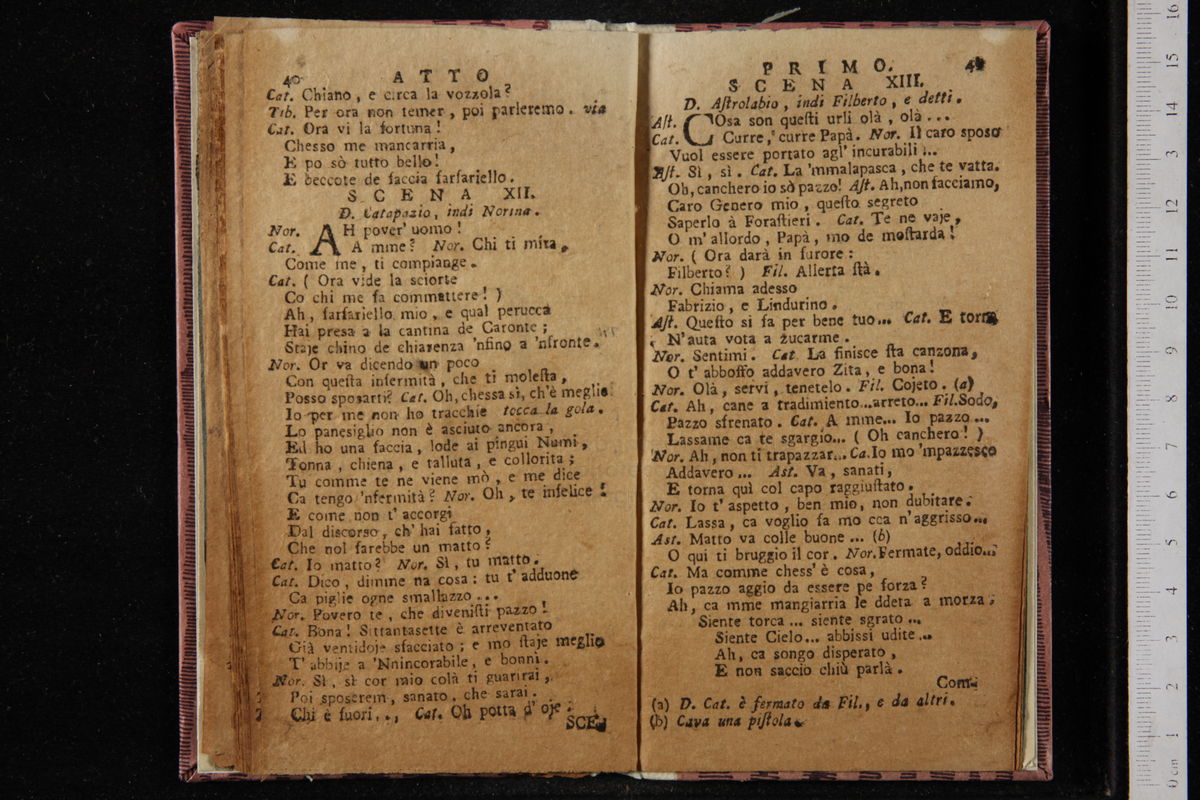 40 ATTO
Cat. Chiano, e circa la vozzola?
Tib. Per ora non temer, poi parleremo. via
Cat. Ora vi la fortuna!
Chesso me mancarria,
E po sò tutto bello!
E beccote de faccia farfariello.
SCENA XII.
D. Catapazio, indi Norina.
Nor. AH pover' uomo!
Cat. A mme? Nor. Chi ti mira,
Come me, ti compiange.
Cat. ( Ora vide la sciorte
Co chi me fa commattere! )
Ah, farfariello mio, e qual perucca
Hai presa a la cantina de Caronte;
Staje chino de chiarenza 'nfino a 'nfronte.
Nor. Or va dicendo un poco
Con questa infermità, che ti molesta,
Posso sposarti? Cat. Oh, chessa sì, ch'è meglio
Io per me non ho tracchie tocca la gola.
Lo panesiglio non è asciuto ancora,
Ed ho una faccia, lode ai pingui Numi,
Tonna, chiena, e talluta, e collorita;
Tu comme te ne viene mò, e me dice
Ca tengo 'nfermità? Nor. Oh, te infelice!
E come non t' accorgi
Dal discorso, ch' hai fatto,
Che nol farebbe un matto?
Cat. Io matto? Nor. Sì, tu matto.
Cat. Dico, dimme na cosa: tu t' adduone
Ca piglie ogne smallazzo ...
Nor. Povero te, che divenisti pazzo!
Cat. Bona! Sittantasette è arreventato
Già ventidoje sfacciato; e mo staje meglio
T' abbije a 'Nnincorabile, e bonnì.
Nor. Sì, sì cor mio colà ti guarirai,
Poi sposerem, sanato, che sarai.
Chi è fuori.., Cat. Oh potta d' oje!
SCE-
PRIMO. 41
SCENA XIII.
D. Astrolabio, indi Filberto, e detti.
Ast. COsa son questi urli olà, olà...
Cat. Curre, curre Papà. Nor. Il caro sposo
Vuol essere portato agl' incurabili...
Ast. Sì, sì. Cat. La 'mmalapasca, che te vatta.
Oh, canchero io sò pazzo! Ast. Ah, non facciamo,
Caro Genero mio, questo segreto
Saperlo à Forastieri. Cat. Te ne vaje,
O m' allordo, Papà, mo de mostarda!
Nor. ( Ora darà in furore:
Filberto? ) Fil. Allerta stà.
Nor. Chiama adesso
Fabrizio, e Lindurino.
Ast. Questo si fa per bene tuo... Cat. E torna
N'auta vota a zucarme.
Nor. Sentimi. Cat. La finisce sta canzona,
O t' abboffo addavero Zita, e bona!
Nor. Olà, servi, tenetelo. Fil. Cojeto. (a)
Cat. Ah, cane a tradimiento...arreto... Fil. Sodo,
Pazzo sfrenato. Cat. A mme... Io pazzo...
Lassame ca te sgargio... ( Oh canchero! )
Nor. Ah, non ti trapazzar... Ca. Io mo 'mpazzesco
Addavero... Ast. Va, sanati,
E torna quì col capo raggiustato.
Nor. Io t' aspetto, ben mio, non dubitare.
Cat. Lassa, ca voglio fa mo cca n'aggrisso...
Ast. Matto va colle buone ... (b)
O qui ti bruggio il cor. Nor. Fermate, oddio...
Cat. Ma comme chess' è cosa,
Io pazzo aggio da essere pe forza?
Ah, ca mme mangiarria le ddeta a morza.
Siente torca ... siente sgrato ...
Siente Cielo... abbissi udite...
Ah, ca songo disperato,
E non saccio chiù parlà.
Com-
(a) D. Cat. è fermato da Fil., e da altri.
(b) Cava una pistola.